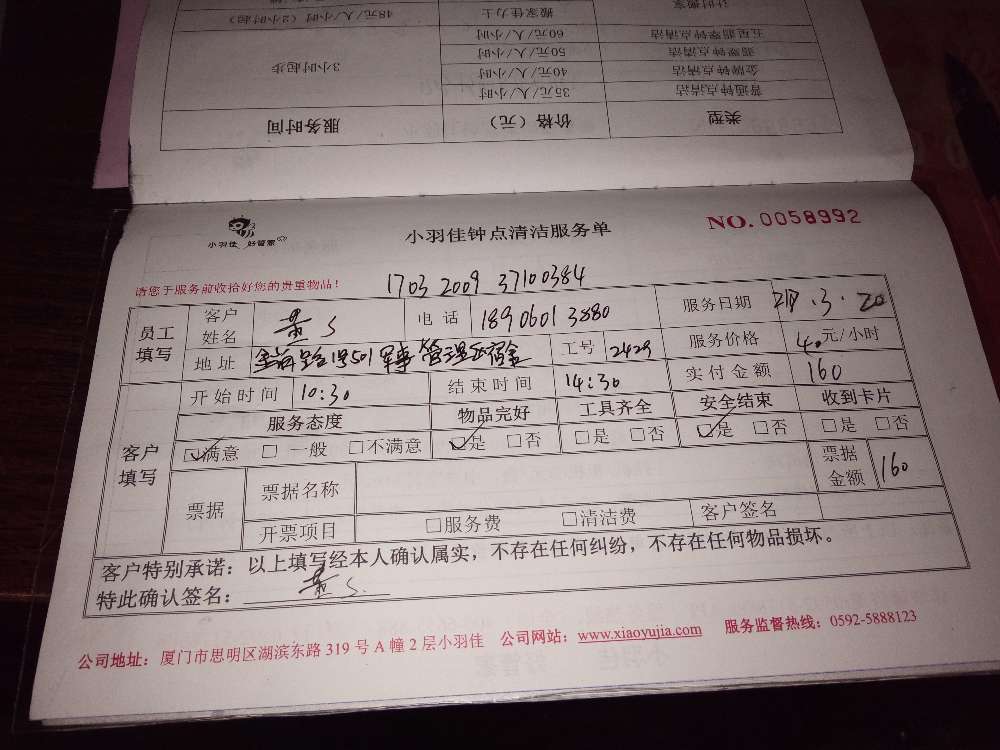 计时搬家 搬家佳力士 48元/人/小时(2小时起)
五星翡翠钟点清洁 60元/人/小时
翡翠钟点清洁 50元/人/小时
金牌钟点清洁 40元/人/小时 3小时起步
普通钟点清洁 35元/人/小时
类型 价格(元) 服务时间
小羽佳 好管家
小羽佳钟点清洁服务单
NO.0058992
请您于服务前收拾好您的贵重物品!
1703 2009 37100384
员工填写 客户姓名 电话 18906013880 服务日期
地址 工号 2429 服务价格 40元/小时
开始时间 10:30 结束时间 14:30 实付金额 160
客户填写 服务态度 物品完好 工具齐全 安全结束 收到卡片
☑满意 □一般 □不满意 ☑是 □否 □是 □否 ☑是 □否 □是 □否
票据 票据名称 票据金额 160
开票项目 □服务费 □清洁费 客户签名
客户特别承诺:以上填写经本人确认属实,不存在任何纠纷,不存在任何物品损坏。
特此确认签名:
公司地址:厦门市思明区湖滨东路319号A幢2层小羽佳 公司网站:www.xiaoyujia.com 服务监督热线:0592-5888123